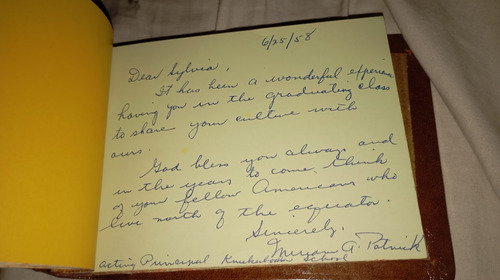 6/25/58
Dear Sylvia,
It has been a wonderful experience
having you in the graduating class
to share your culture with
ours.
God bless you always and
in the years to come think
of your fellow Americans who
live north of the equator.
Sincerely,
Miryam A. Patrick
Acting Principal School